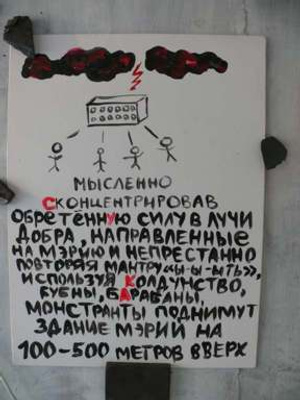 МЫСЛЕННО
СКОНЦЕНТРИРОВАВ
ОБРЕТЁННУЮ СИЛУ В ЛУЧИ
ДОБРА, НАПРАВЛЕННЫЕ
НА МЭРИЮ И НЕПРЕСТАННО
ПОВТОРЯЯ МАНТРУ «Ы-Ы-ЫТЬ»,
ИСПОЛЬЗУЯ КОЛДУНСТВО,
БУБНЫ, БАРАБАНЫ,
МОНСТРАНТЫ ПОДНИМУТ
ЗДАНИЕ МЭРИЙ НА
100-500 МЕТРОВ ВВЕРХ